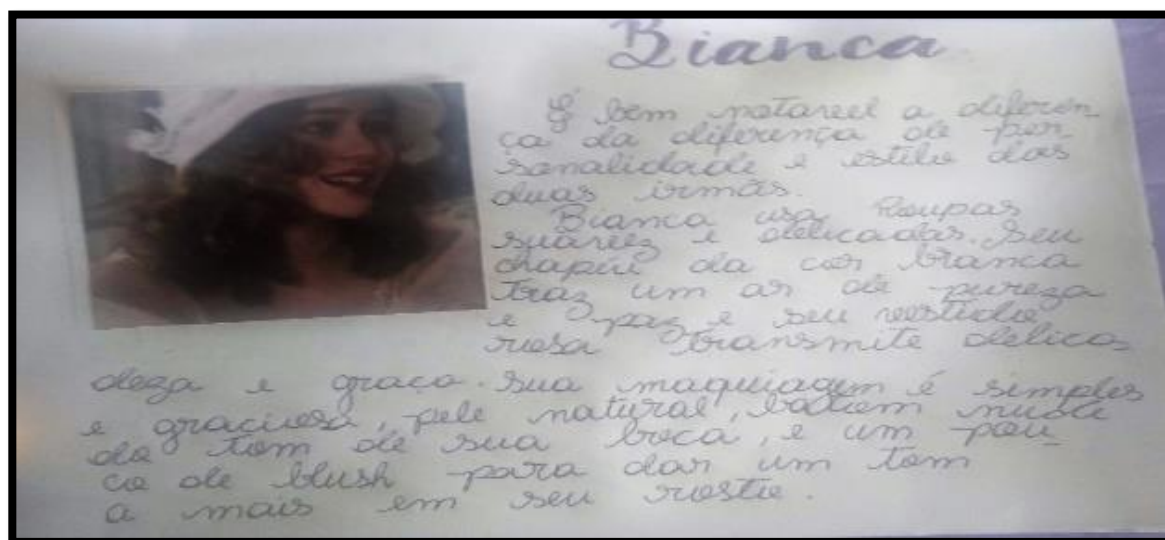 Bianca
É bem notavel a diferen_
ça da diferença de per_
sonalidade e estilo das
duas irmãs.
Bianca usa Roupas
suavez e delicadas. Seu
chapéu da cor branca
traz um ar de pureza
e paz e seu vestido
rosa transmite delica_
deza e graça. Sua maquiagem é simples
e graciosa, pele natural, batom nude
do tom de sua boca, e um pou_
co de blush para dar um tom
a mais em seu rosto.